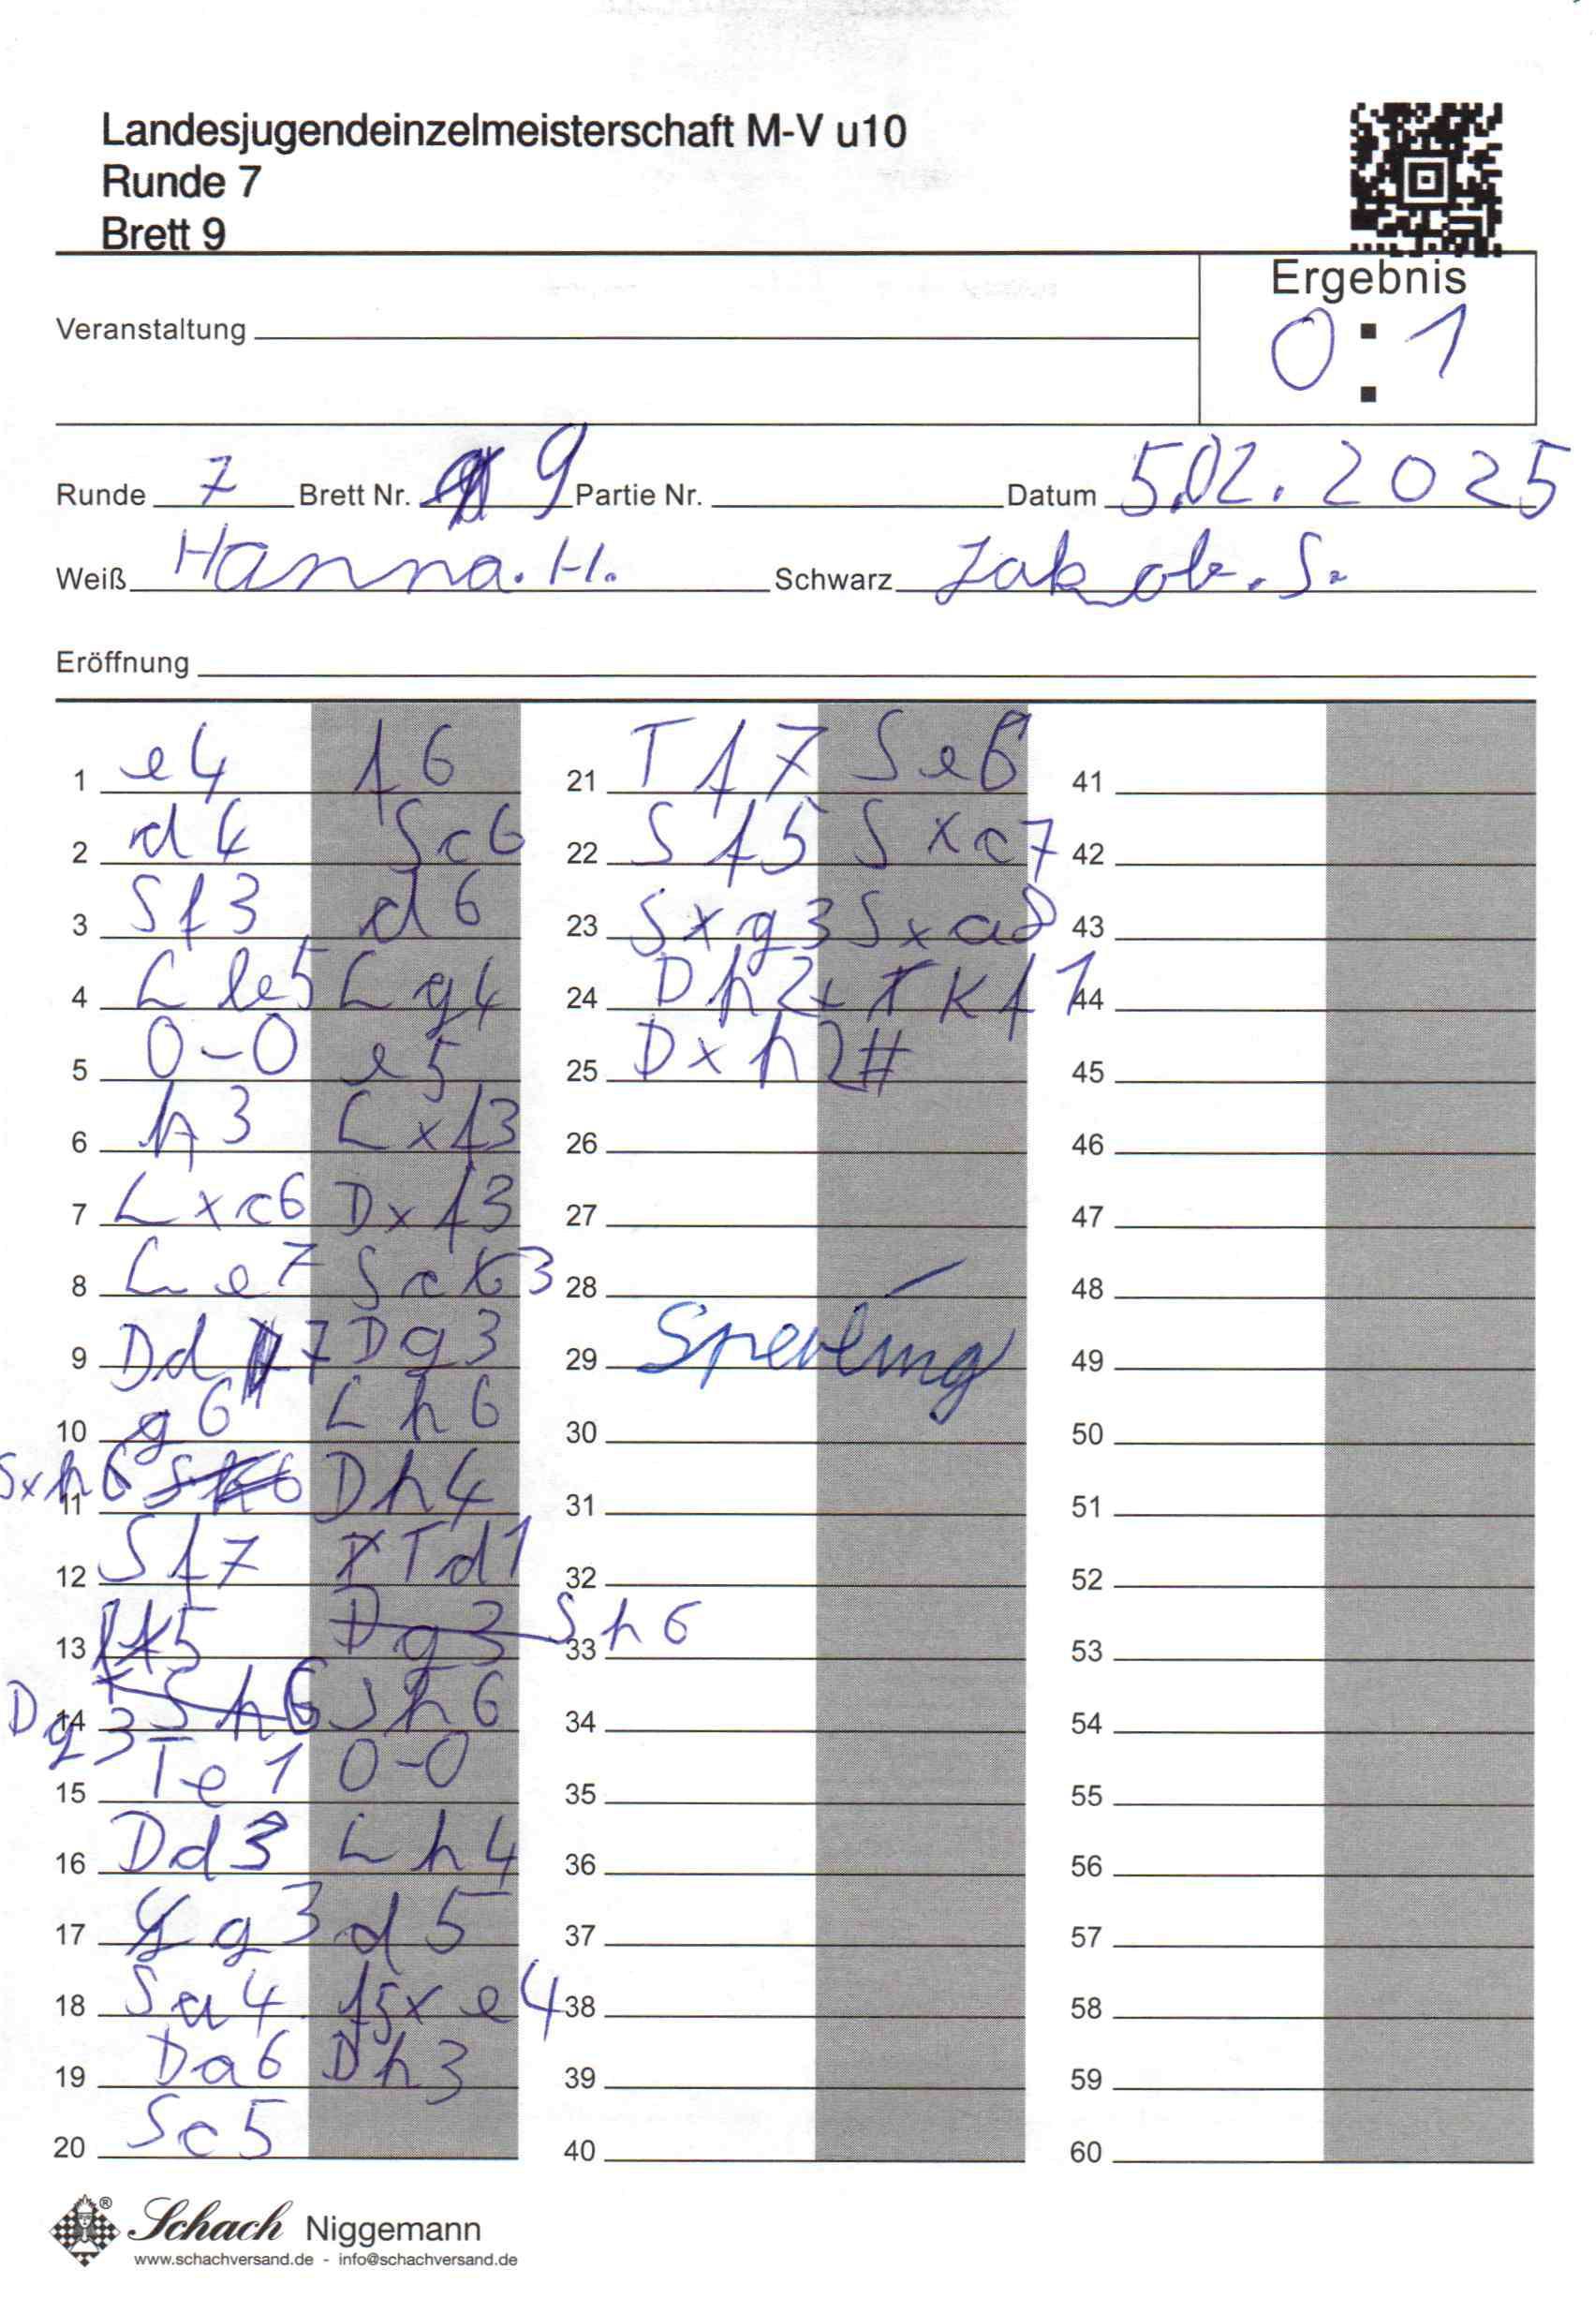 Landesjugendeinzelmeisterschaft M-V u10
Runde 7
Brett 9
Ergebnis
0:1
Veranstaltung
Runde 7 Brett Nr. 9 Partie Nr. Datum 5.02.2025
Weiß Hanna. H. Schwarz Jakob. S.
Eröffnung
1 e4 f6
2 d4 Sc6
3 Sf3 d6
4 L le5 Lg4
5 0-0 e5
6 h3 Lxf3
7 Lxc6 Dxf3
8 Le7 Sc3
9 Dd7 Dg3
10 g6 Lh6
11 Sxh6 Dh4
12 Sf7 Td1
13 Sh6
14 Dg3 Sh6
15 Te1 0-0
16 Dd3 Lh4
17 g3 d5
18 Sa4 f5xe4
19 Da6 Dh3
20 Sc5
21 Tf7 Se6
22 Sf5 Sxc7
23 Sxg3 Sxa8
24 Dh2+ Kf1
25 Dxh2#
26
27
28
29 Sperling
30
31
32
33
34
35
36
37
38
39
40
41
42
43
44
45
46
47
48
49
50
51
52
53
54
55
56
57
58
59
60
Schach Niggemann
www.schachversand.de - info@schachversand.de